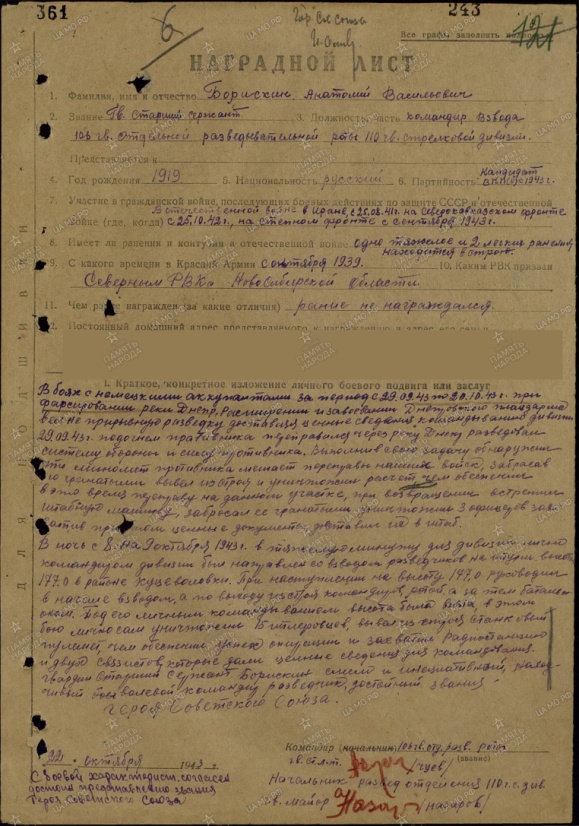 361
243
Гер Сов союза
121
6
Все графы заполнять полностью
НАГРАДНОЙ ЛИСТ
1. Фамилия, имя и отчество Борискин Анатолий Васильевич
2. Звание Гв. Старший сержант 3. Должность, часть командир взвода
106 гв. отдельной разведывательной роты 110 гв. стрелковой дивизии.
Представляется к
4. Год рождения 1919 5. Национальность русский 6. Партийность Кандидат ВКП(б) с 1943 г.
7. Участие в гражданской войне, последующих боевых действиях по защите СССР и отечественной
войне (где, когда) В отечественной войне в Иране, с 25.08.41г. на Северокавказском фронте
с 25.10.42г., на степном фронте с сентября 1943г.
8. Имеет ли ранения и контузии в отечественной войне одно тяжелое и 2 легких ранения,
находится в строю.
9. С какого времени в Красной Армии с октября 1939. 10. Каким РВК призван
Северным РВКа Новосибирской области
11. Чем ранее награжден (за какие отличия) ранее не награждался.
12. Постоянный домашний адрес представляемого к награждению и адрес его семьи
I. Краткое, конкретное изложение личного боевого подвига или заслуг
В боях с немецкими оккупантами за период с 29.09.43 по 20.10.43г. при
форсировании реки Днепр, расширении и завоевании Днепровского плацдарма
вел не прирывную разведку доставлял ценные сведения командованию дивизии
29.09.43г. под огнем противника переправился через реку Днепр разведовал
систему обороны и силы противника. Выполнив свою задачу обнаружил
что миномет противника мешает переправы наших войск, забросав
его гранатами вывел из строя и уничтожил расчет чем обеспечил
в это время переправу на данном участке, при возвращении встретил
штабную машину, забросал ее гранатами уничтожил 3 офицеров зах-
ватив при этом ценные документы, доставил их в штаб.
В ночь с 8 на 9 октября 1943г. в тяжелую минуту для дивизии лично
командиром дивизии был направлен со взводом разведчиков на штурм высоты
177,0 в районе Куцеволовки. При наступлении на высоту 177,0 руководил
в начале взводом, а по выходу из строя командиров, ротой, а затем батальо-
оном. Под его личным командыванием высота была взята, в этом
бою лично сам уничтожил гитлеровцев, вывел из строя станковый
пулемет, чем обеспечил успех операции и захватил радиостанцию
и двух связистов, которые дали ценные сведения для командования.
Гвардии Старший Сержант Борискин смелый и инициативный, наход-
чивый боевой волевой командир разведчик, достойный звания
Героя Советского Союза.
Командир (начальник) 106 гв. отд. разв. роты
гв. ст. л-т. /Чуев/ (звание)
22 октября 1943 г.
С боевой характерист. согласен
достоин представлению звания
Героя Советского Союза
Начальник развед отделения 110 г.с. див
гв. майор Назаров /Назаров/
ДЛЯ ПОДШИВКИ
ПАМЯТЬ НАРОДА
ЦАМО.РФ